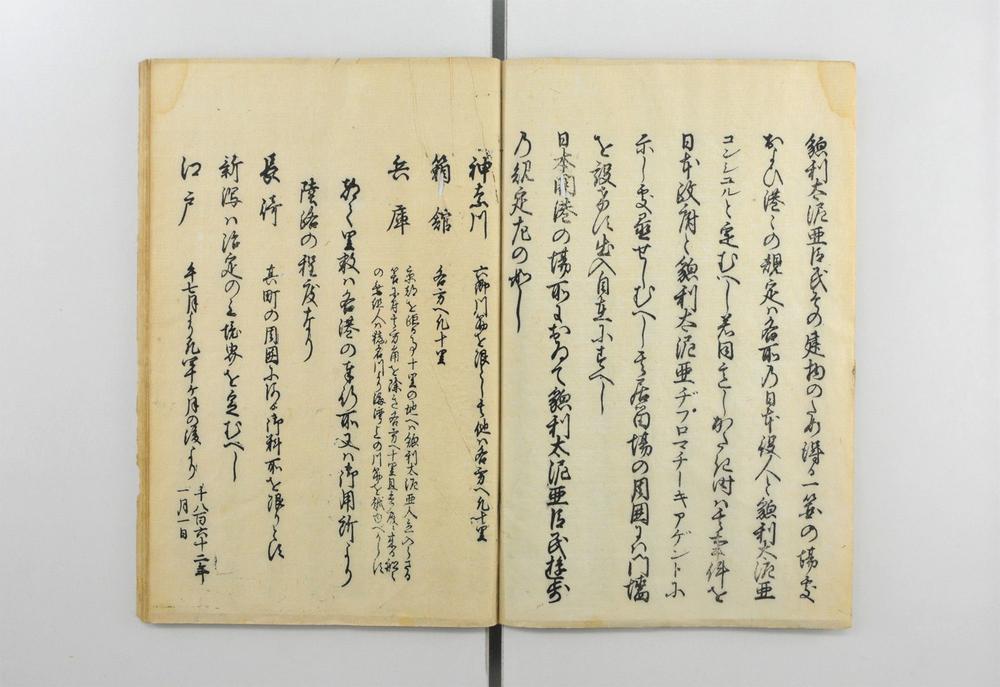 貌利太泥亜臣民その建物のため得る一箇の場処
および港々の規定は各所の日本役人と貌利太泥亜
コンシュルと定むへし若同意しかたき時は其事件を
日本政府と貌利太泥亜ヂプロマチーキアゲントに
示し處置せしむへし其居留場の周囲に門墻
を設す出入自在にすへし
日本開港の場所において貌利太泥亜臣民遊歩
の規定左の如し
神奈川 六郷川筋を限とし其他は各方へ凡十里
箱館 各方へ凡十里
兵庫 京都を距る事十里の地へは貌利太泥亜人立入さる
筈に付其方角を除き各方へ十里且兵庫に来る船々
の乗組人は猪名川より海湾迄の川筋を越ゆへからす
都て里数は各港の奉行所又は御用所より
陸路の程度なり
長崎 其町の周囲にある御料所を限りとす
新潟は治定の上境界を定むへし
江戸 年七月より凡 ヶ月の後より
千八百六十二年
一月一日